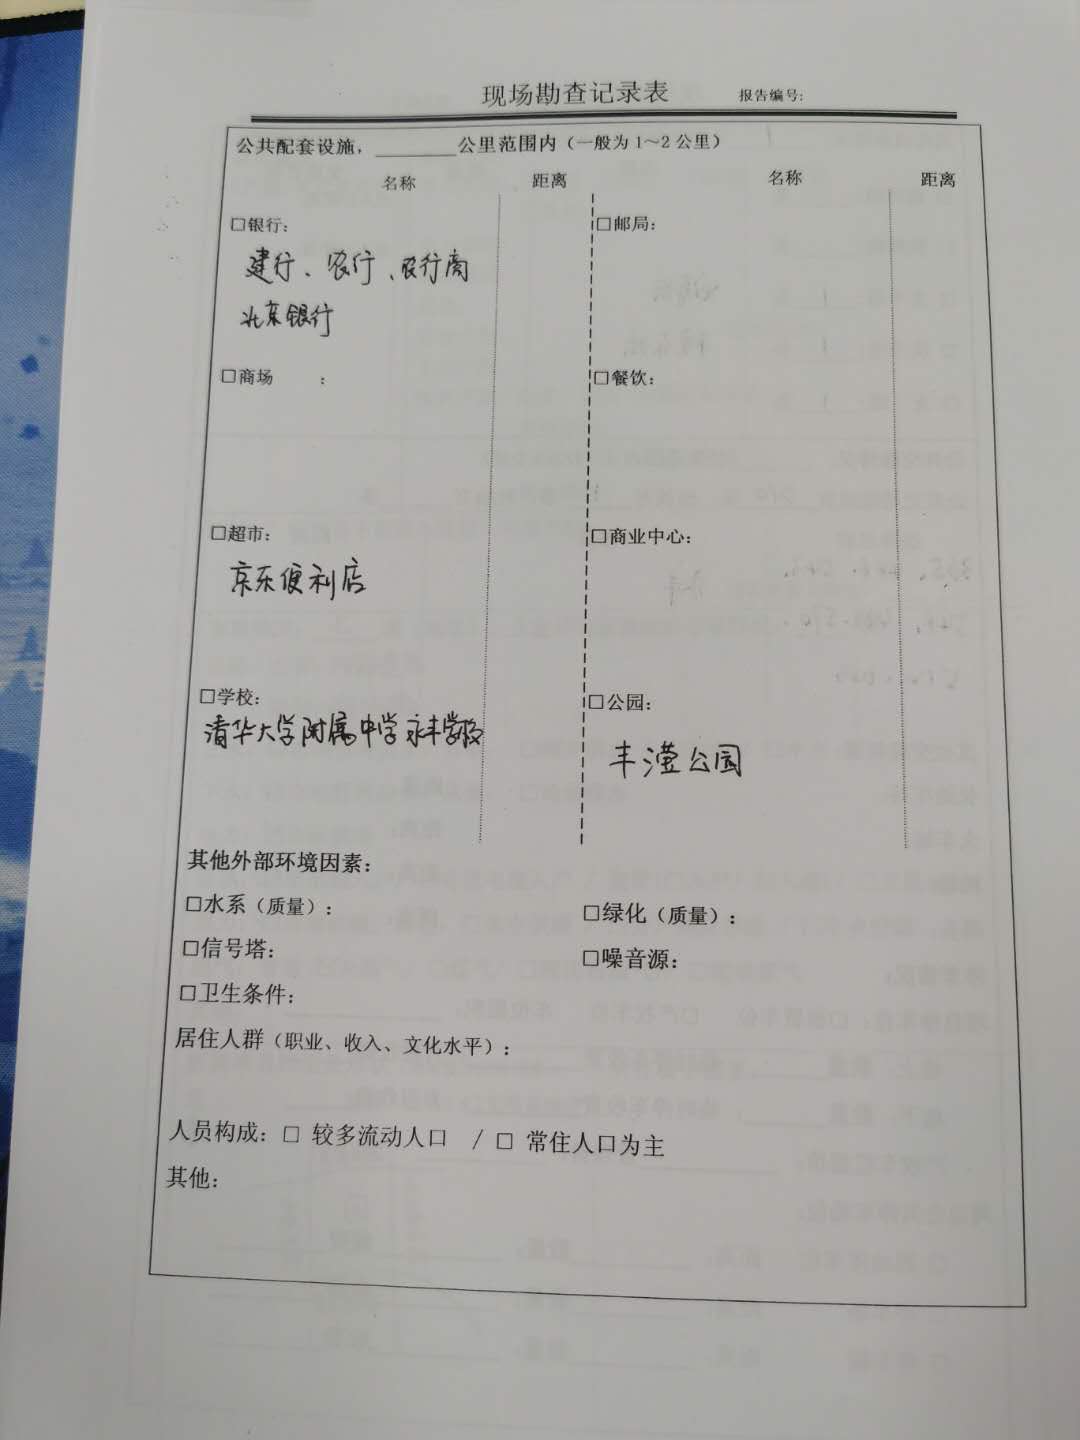 现场勘查记录表 报告编号:
公共配套设施，________公里范围内（一般为1～2公里）
名称 距离 名称 距离
□银行: □邮局:
建行、农行、农行商
北京银行
□商场 ： □餐饮:
□超市: □商业中心:
京东便利店
□学校: □公园:
清华大学附属中学永丰学校
丰滢公园
其他外部环境因素:
□水系（质量）: □绿化（质量）:
□信号塔: □噪音源:
□卫生条件:
居住人群（职业、收入、文化水平）:
人员构成: □ 较多流动人口 / □ 常住人口为主
其他: